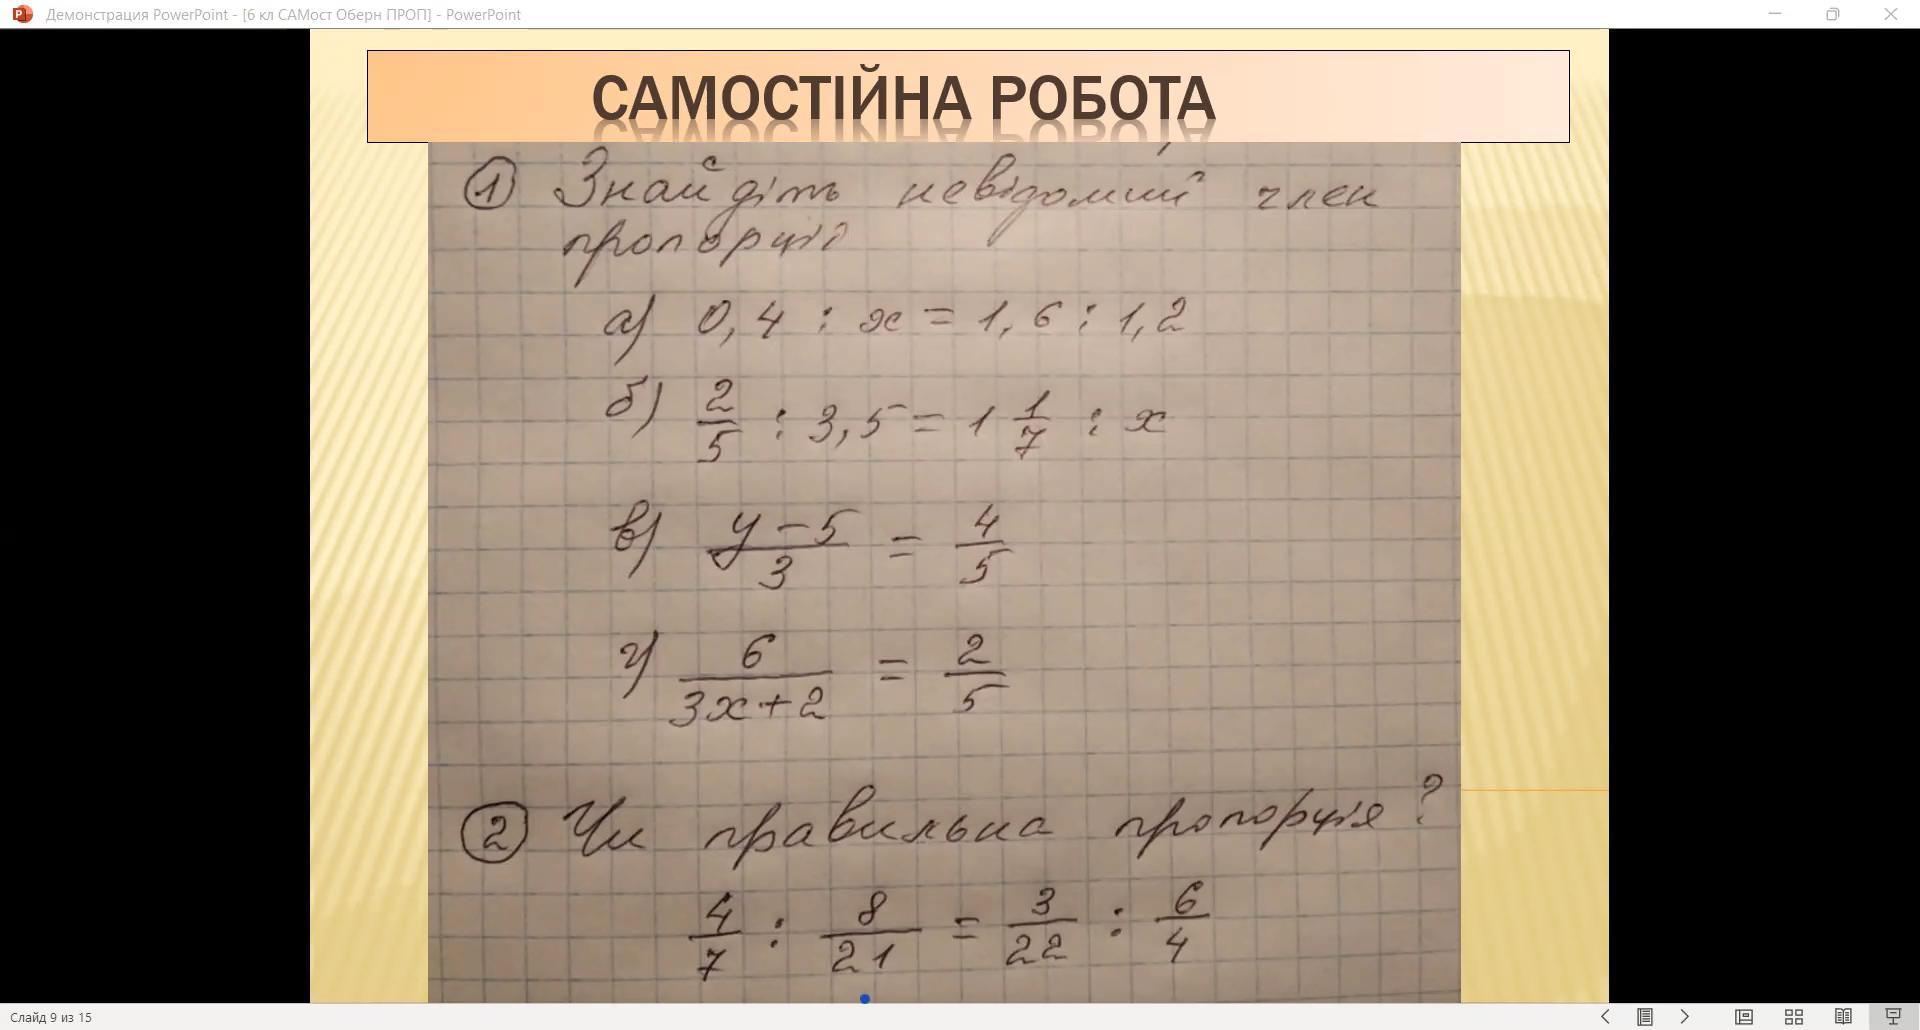 Демонстрация PowerPoint - [6 кл САМост Оберн ПРОП] - PowerPoint
САМОСТІЙНА РОБОТА
1 Знайдіть невідомий член
пропорції
а) 0,4 : x = 1,6 : 1,2
б) 2/5 : 3,5 = 1 1/7 : x
в) (y – 5)/3 = 4/5
г) 6/(3x + 2) = 2/5
2 Чи правильна пропорція?
4/7 : 8/21 = 3/22 : 6/4
Слайд 9 из 15